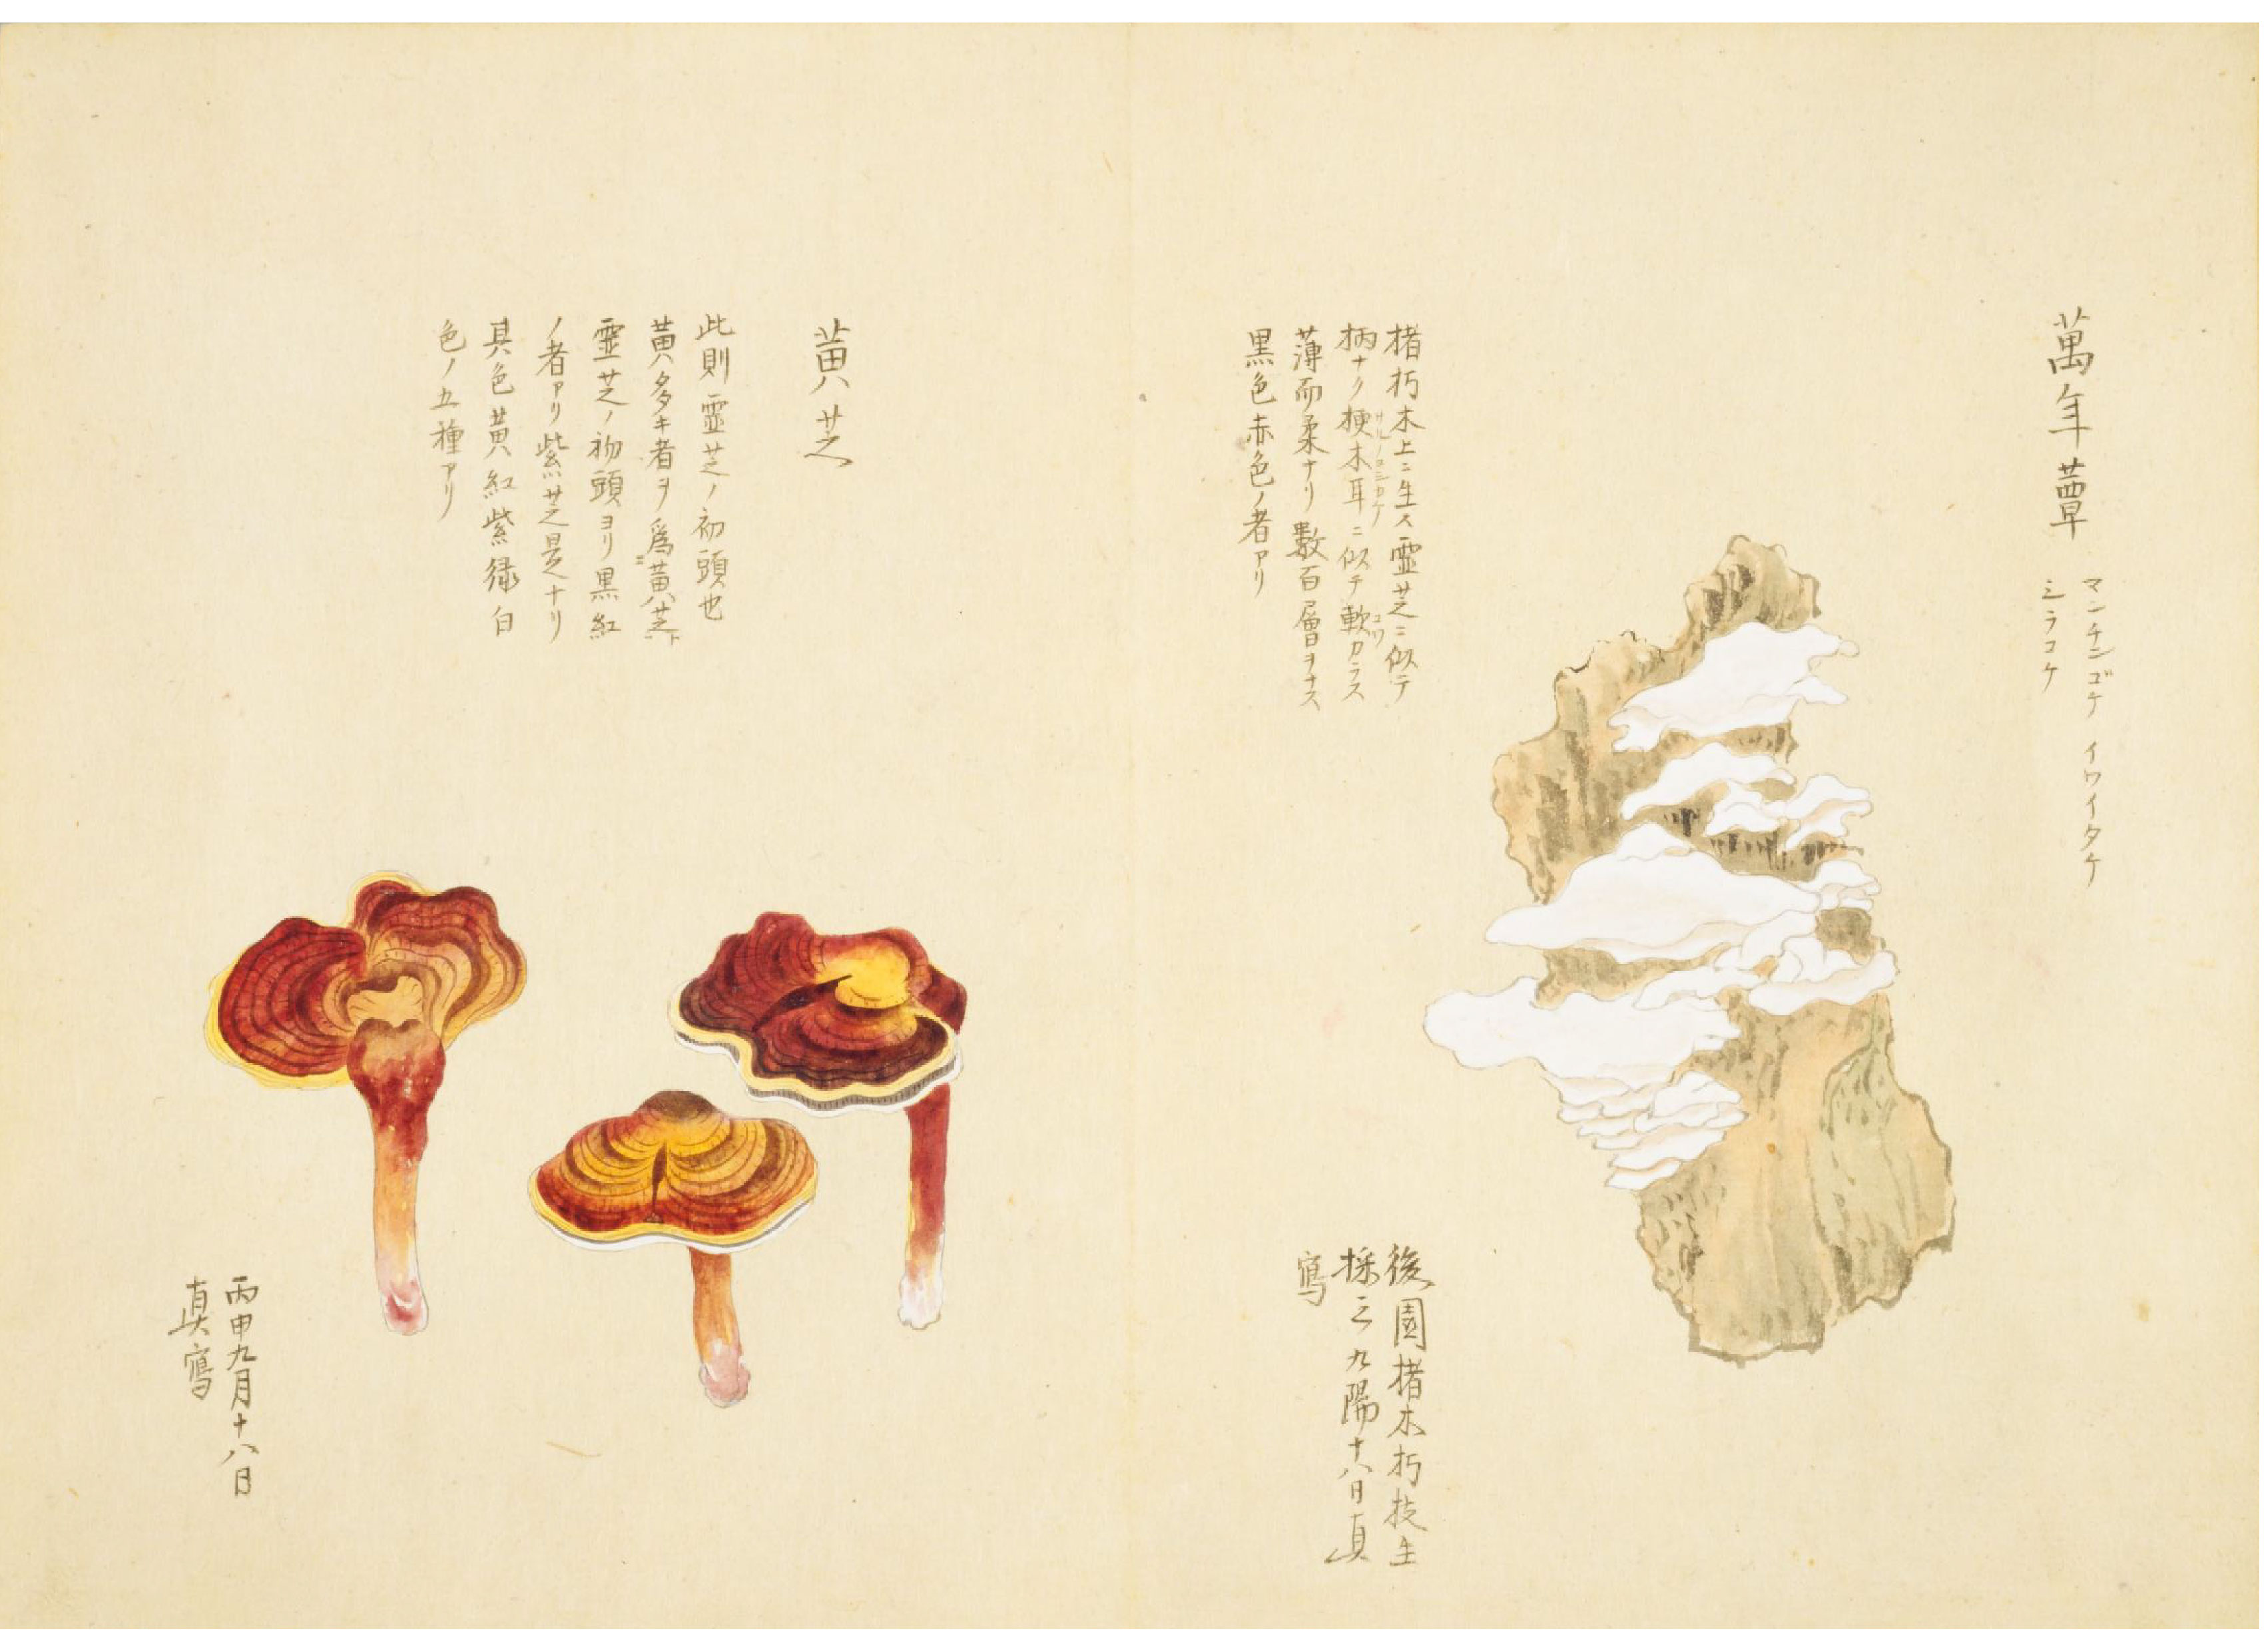 萬年蕈
マンチンゴケ イワイタケ
シラコケ
楮朽木上ニ生ス霊芝ニ似テ
柄ナク梗木耳ニ似テ軟カラス
サルノコシカケ
コワ
薄而柔ナリ数百層ヲナス
黒色赤色ノ者アリ
後園楮木朽技生
採之九陽十八日真
寫
黄芝
此則霊芝ノ初頭也
黄多キ者ヲ為黄芝
霊芝ノ初頭ヨリ黒紅
ノ者アリ紫芝是ナリ
其色黄紅紫緑白
色ノ五種アリ
丙申九月十八日
真寫